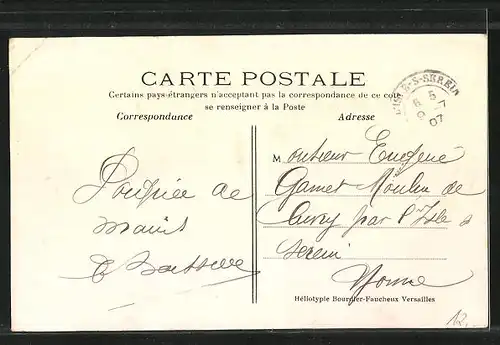 CARTE POSTALE
Certains pays étrangers n'acceptant pas la correspondance de ce coté
se renseigner à la Poste
Correspondance
Adresse
S-SEREIN
6 5
07
Poignée de
mains
Monsieur Eugène
Garnet Moulin de
par l'Isle s
Serein
Yonne
Héliotypie Bourdier-Faucheux Versailles
12.-